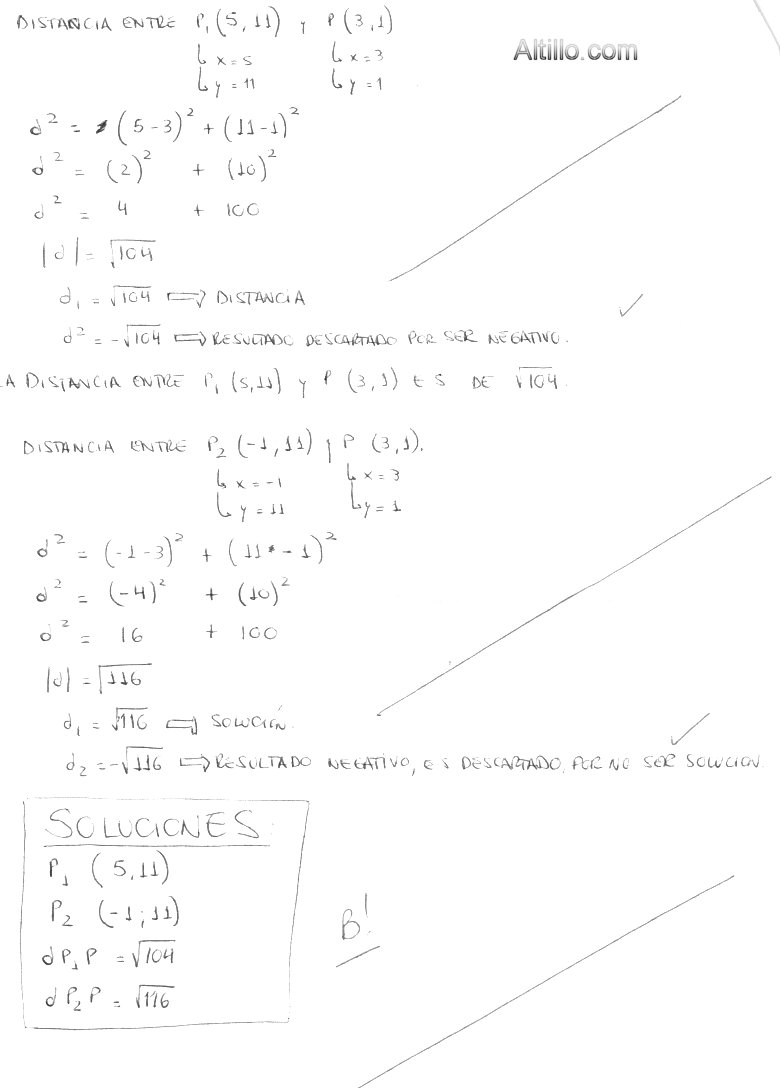 DISTANCIA ENTRE P₁ (5, 11) y P (3, 1)
Altillo.com
↳ x = 5 ↳ x = 3
↳ y = 11 ↳ y = 1
d² = (5 - 3)² + (11 - 1)²
d² = (2)² + (10)²
d² = 4 + 100
|d| = √104
d₁ = √104 ⇒ DISTANCIA
d² = -√104 ⇒ RESULTADO DESCARTADO POR SER NEGATIVO.
LA DISTANCIA ENTRE P₁ (5,11) y P (3,1) ES DE √104.
DISTANCIA ENTRE P₂ (-1, 11) y P (3, 1).
↳ x = -1 ↳ x = 3
↳ y = 11 ↳ y = 1
d² = (-1 - 3)² + (11 - 1)²
d² = (-4)² + (10)²
d² = 16 + 100
|d| = √116
d₁ = √116 ⇒ SOLUCIÓN.
d₂ = -√116 ⇒ RESULTADO NEGATIVO, ES DESCARTADO, POR NO SER SOLUCION.
SOLUCIONES:
P₁ (5, 11)
P₂ (-1; 11)
dP₁P = √104
dP₂P = √116
B!